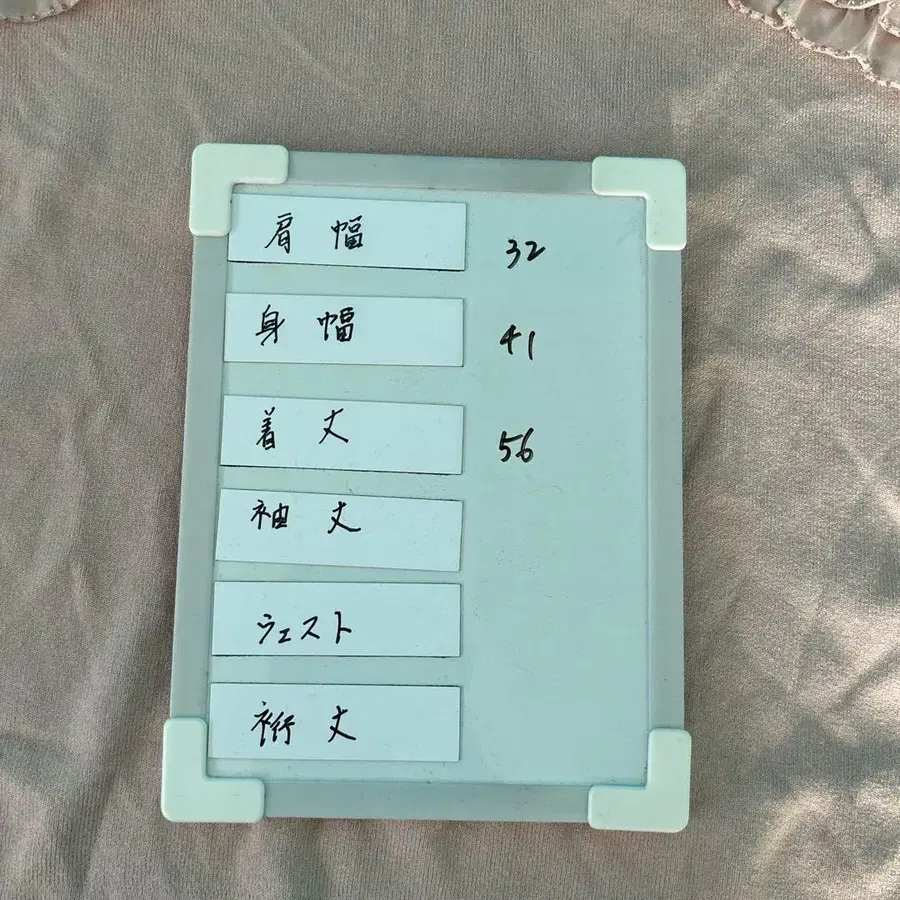 肩幅 32
身幅 41
着丈 56
袖丈
ウェスト
裄丈